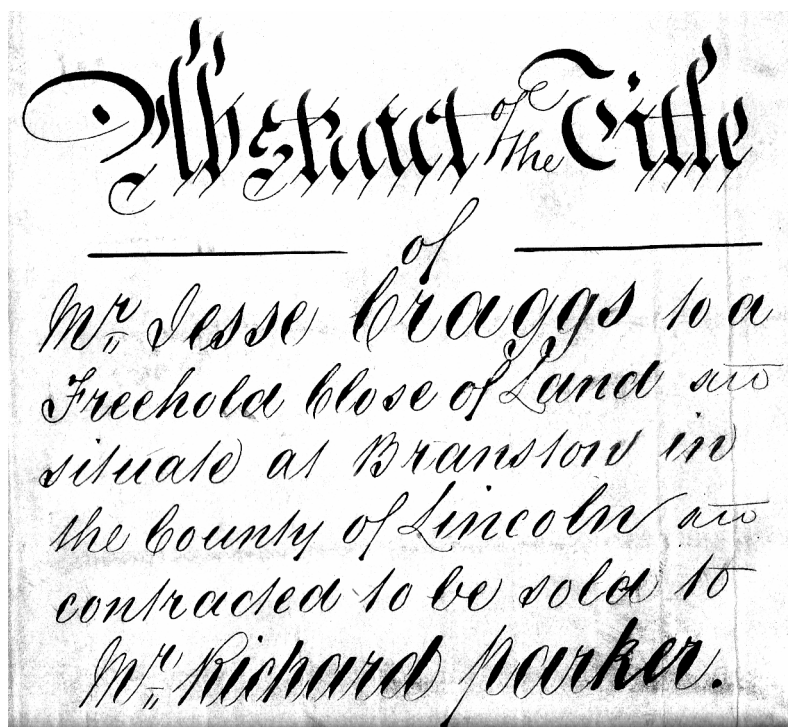 Abstract of the Title
of
Mr. Jesse Craggs to a
Freehold Close of Land
situate at Branston in
the County of Lincoln
contracted to be sold to
Mr. Richard Parker.